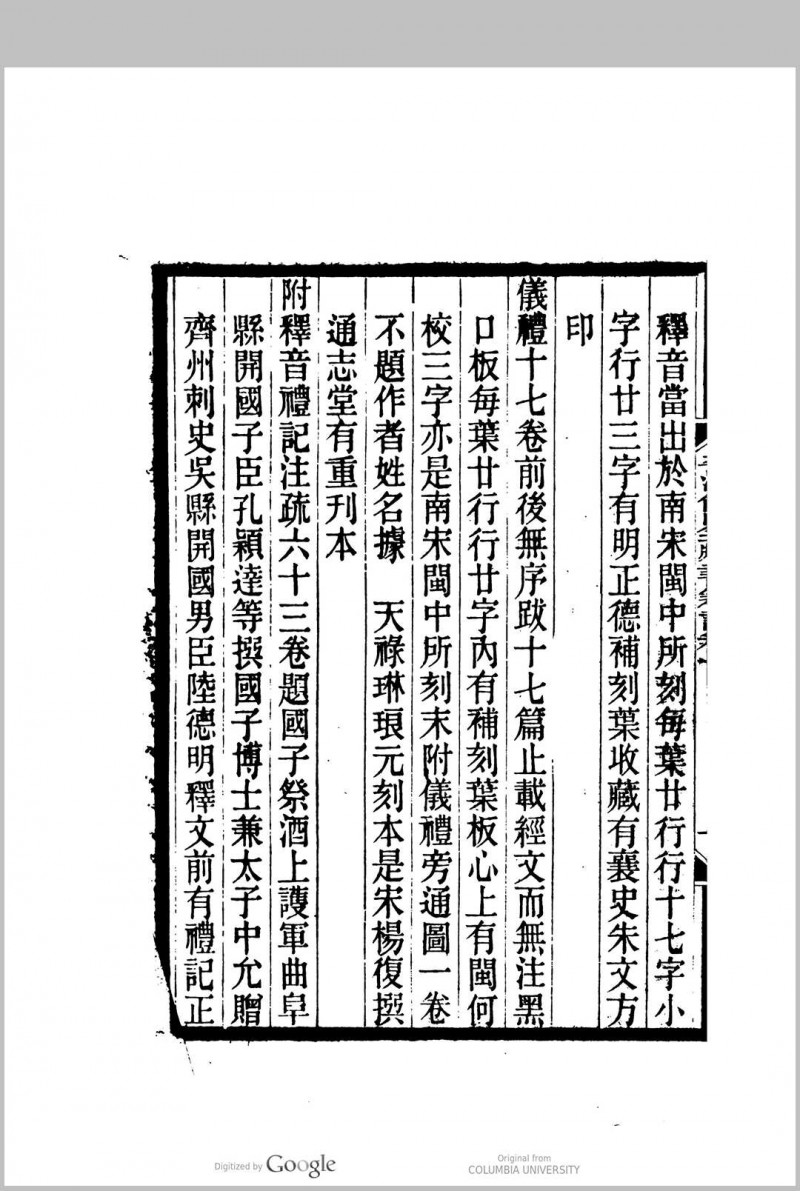 釋音當出於南宋閩中所刻每葉廿行行十七字小
字行廿三字有明正德補刻葉收藏有襄史朱文方
印
儀禮十七卷前後無序跋十七篇止載經文而無注黑
口板每葉廿行行廿字內有補刻葉板心上有閩何
校三字亦是南宋閩中所刻末附儀禮旁通圖一卷
不題作者姓名據　天祿琳琅元刻本是宋楊復撰
通志堂有重刊本
附釋音禮記注疏六十三卷題國子祭酒上護軍曲阜
縣開國子臣孔穎達等撰國子博士兼太子中允贈
齊州刺史吳縣開國男臣陸德明釋文前有禮記正
Digitized by Google
Original from
COLUMBIA UNIVERSITY